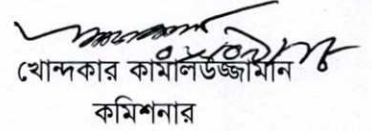 খোন্দকার কামালউজ্জামান
কমিশনার